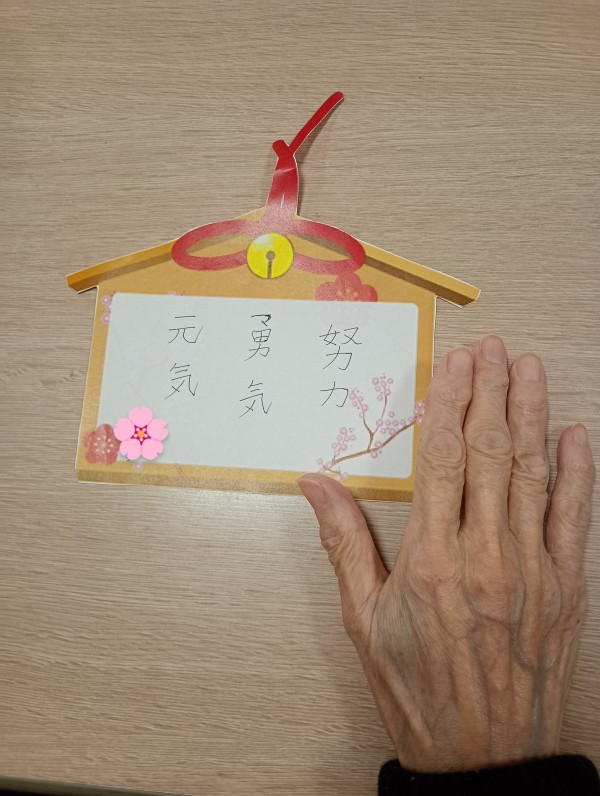 努力
勇気
元気